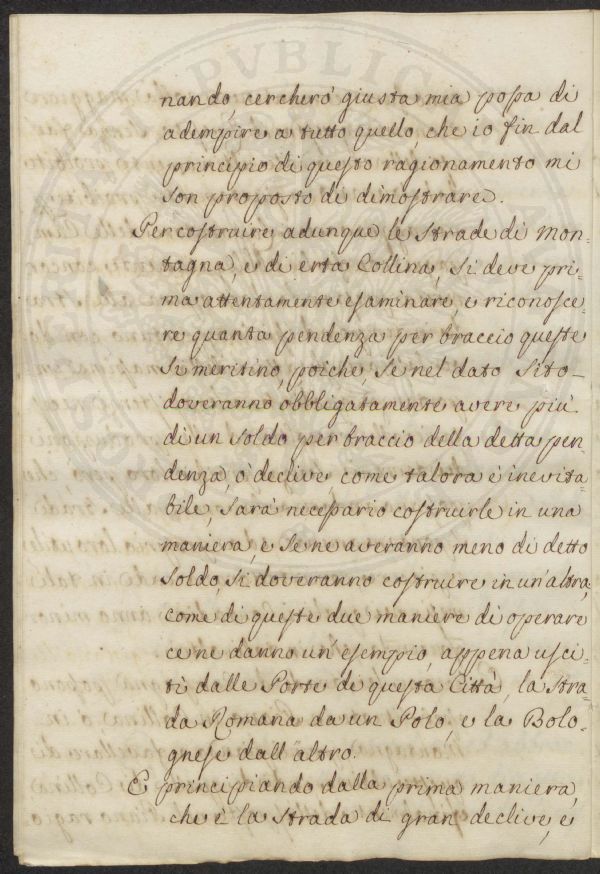 nando, cercherò giusta mia possa di
adempire a tutto quello, che io fin dal
principio di questo ragionamento mi
son proposto di dimostrare.
Per costruire adunque le strade di mon-
tagna, e di erta Collina, si deve pri-
ma attentamente esaminare, e riconosce-
re quanta pendenza per braccio queste
si meritino, poiche, se nel dato sito
doveranno obbligatamente avere più
di un soldo per braccio della detta pen-
denza, ò declive, come talora è inevita-
bile, sarà necessario costruirle in una
maniera, e se ne averanno meno di detto
soldo, si doveranno costruire in un'altra,
come di queste due maniere di operare
ce ne danno un'esempio, appena usci-
ti dalle Porte di questa Città, la stra-
da Romana da un Polo, e la Bolo-
gnese dall'altro.
E principiando dalla prima maniera,
che è la strada di gran declive, e